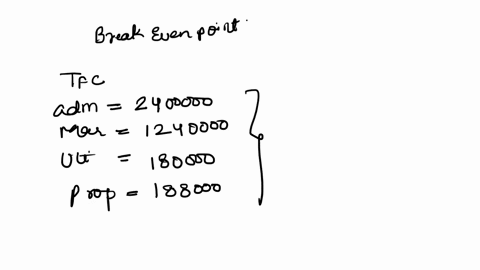 Break Even point.
TFC
adm = 2400000
Mar = 1240000
Uti = 180000
Prop = 188000